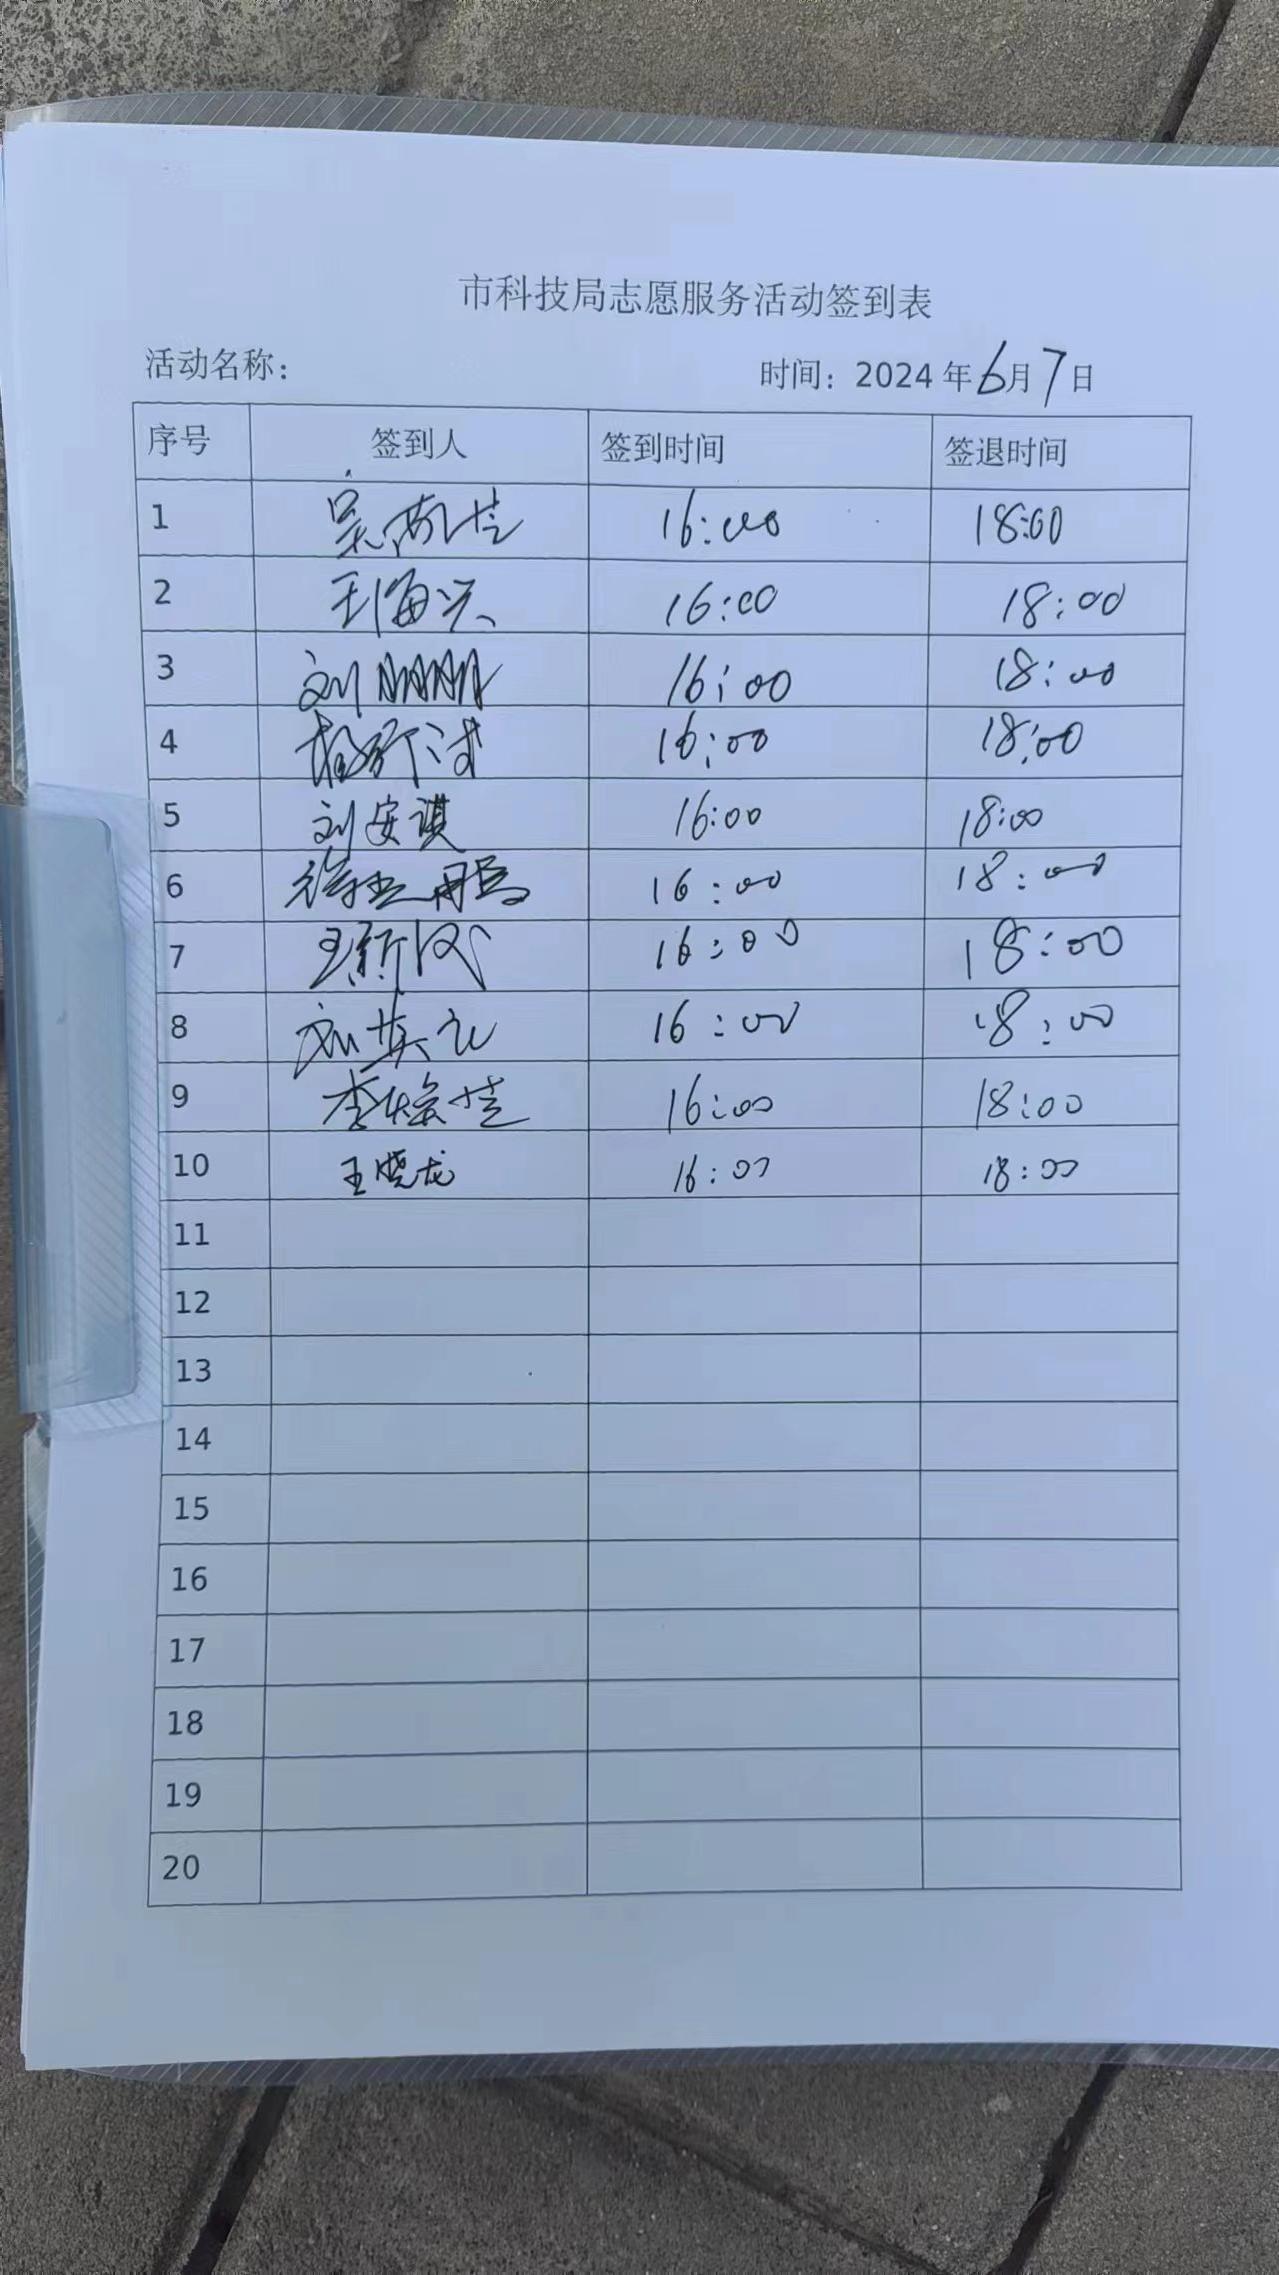 市科技局志愿服务活动签到表
活动名称： 时间：2024年6月7日
序号 签到人 签到时间 签退时间
1 16:00 18:00
2 王海兴 16:00 18:00
3 刘朋朋 16:00 18:00
4 16:00 18:00
5 刘安淇 16:00 18:00
6 16:00 18:00
7 王新 16:00 18:00
8 16:00 18:00
9 李 16:00 18:00
10 王晓龙 16:00 18:00
11
12
13
14
15
16
17
18
19
20